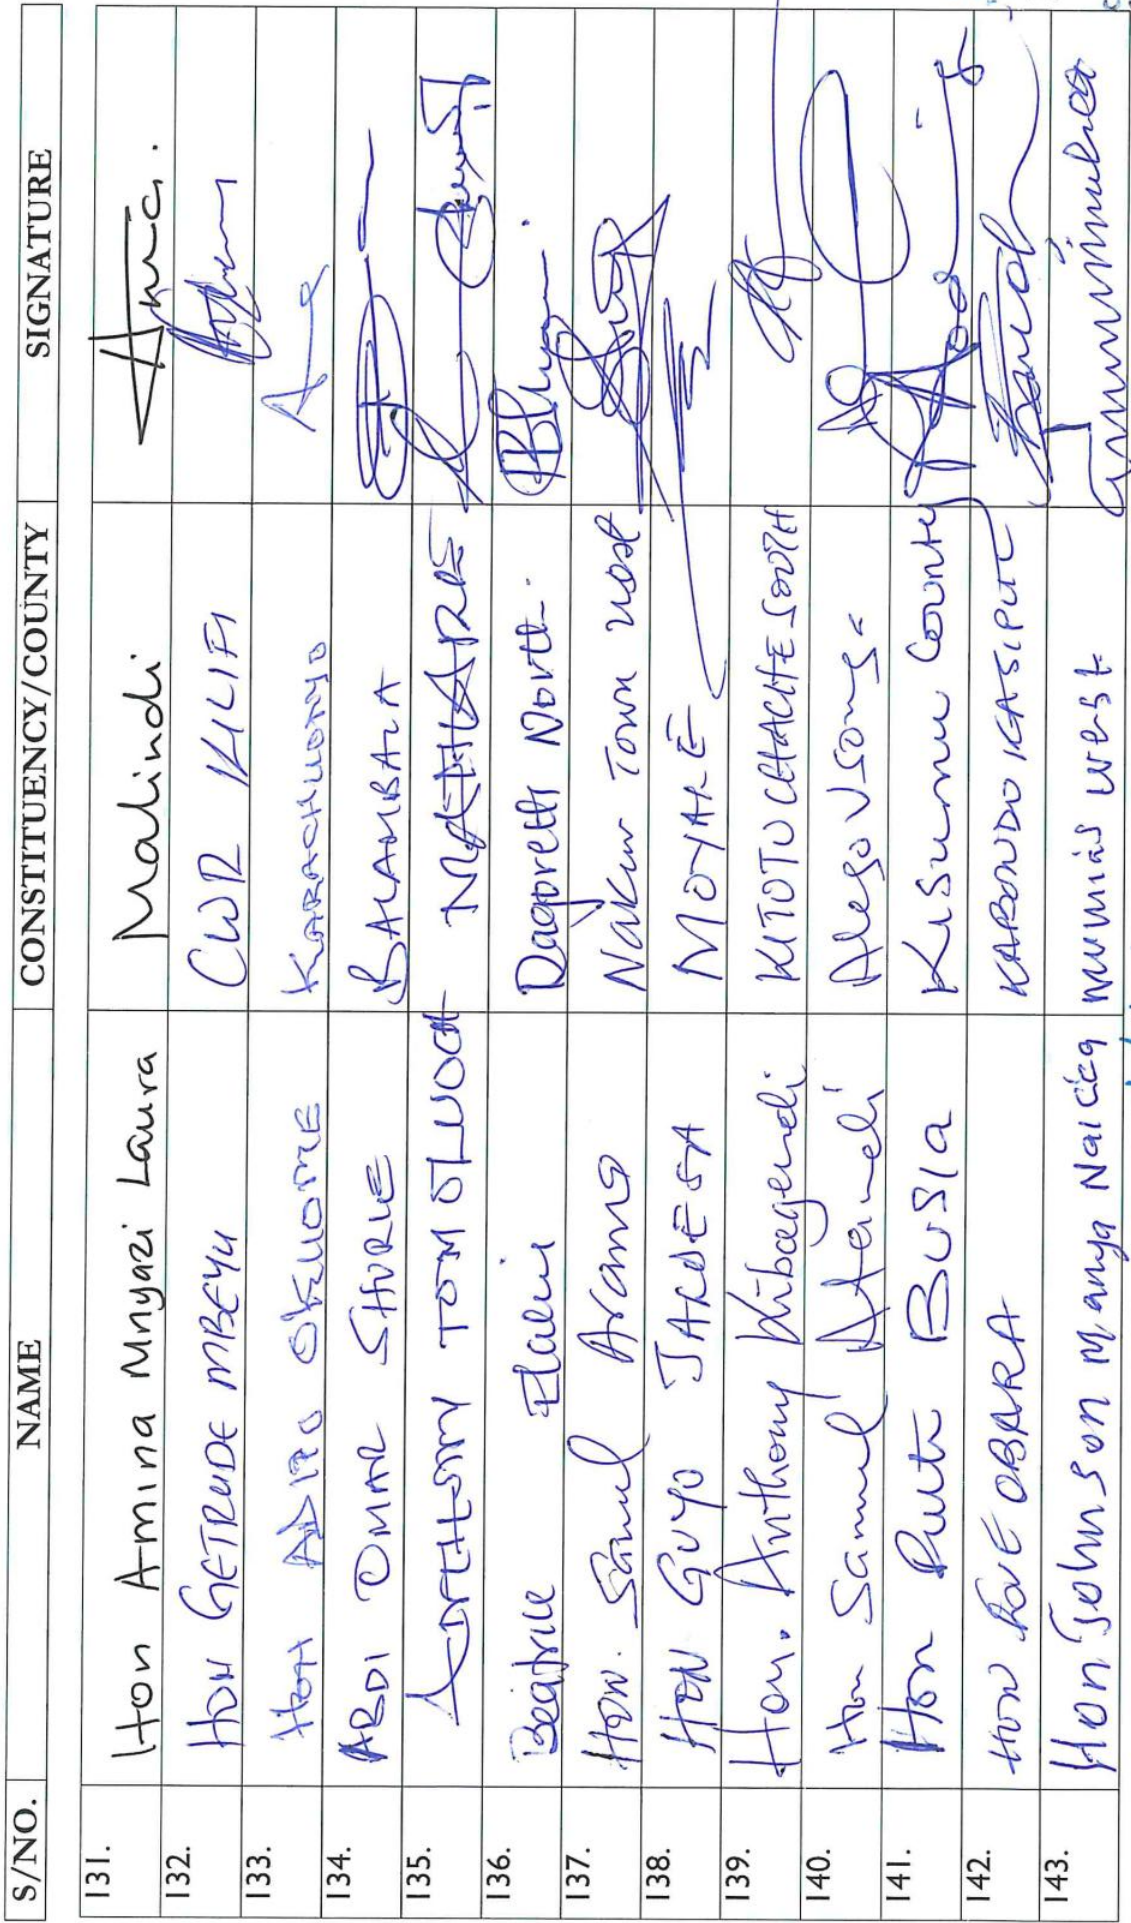 S/NO. NAME CONSTITUENCY/COUNTY SIGNATURE
131. Hon Amina Mnyazi Laura Malindi
132. HON GETRUDE MBEYU CWR KILIFI
133. HON ADIPO OKUOME KARACHUONYO
134. ABDI OMAR SHURIE BALAMBALA
135. ANTHONY TOM OLUOCH MATHARE
136. Beatrice Elachi Dagoretti North
137. HON. Samuel Arama Nakuru Town West
138. HON GUYO JALDESA MOYALE
139. Hon. Anthony Kibagendi KITUTU CHACHE SOUTH
140. Hon Samuel Atandi Alego Usonga
141. Hon Ruth BUSIA Kisumu County
142. HON EVE OBARA KABONDO KASIPUL
143. Hon Johnson Manya Naicca mumias west